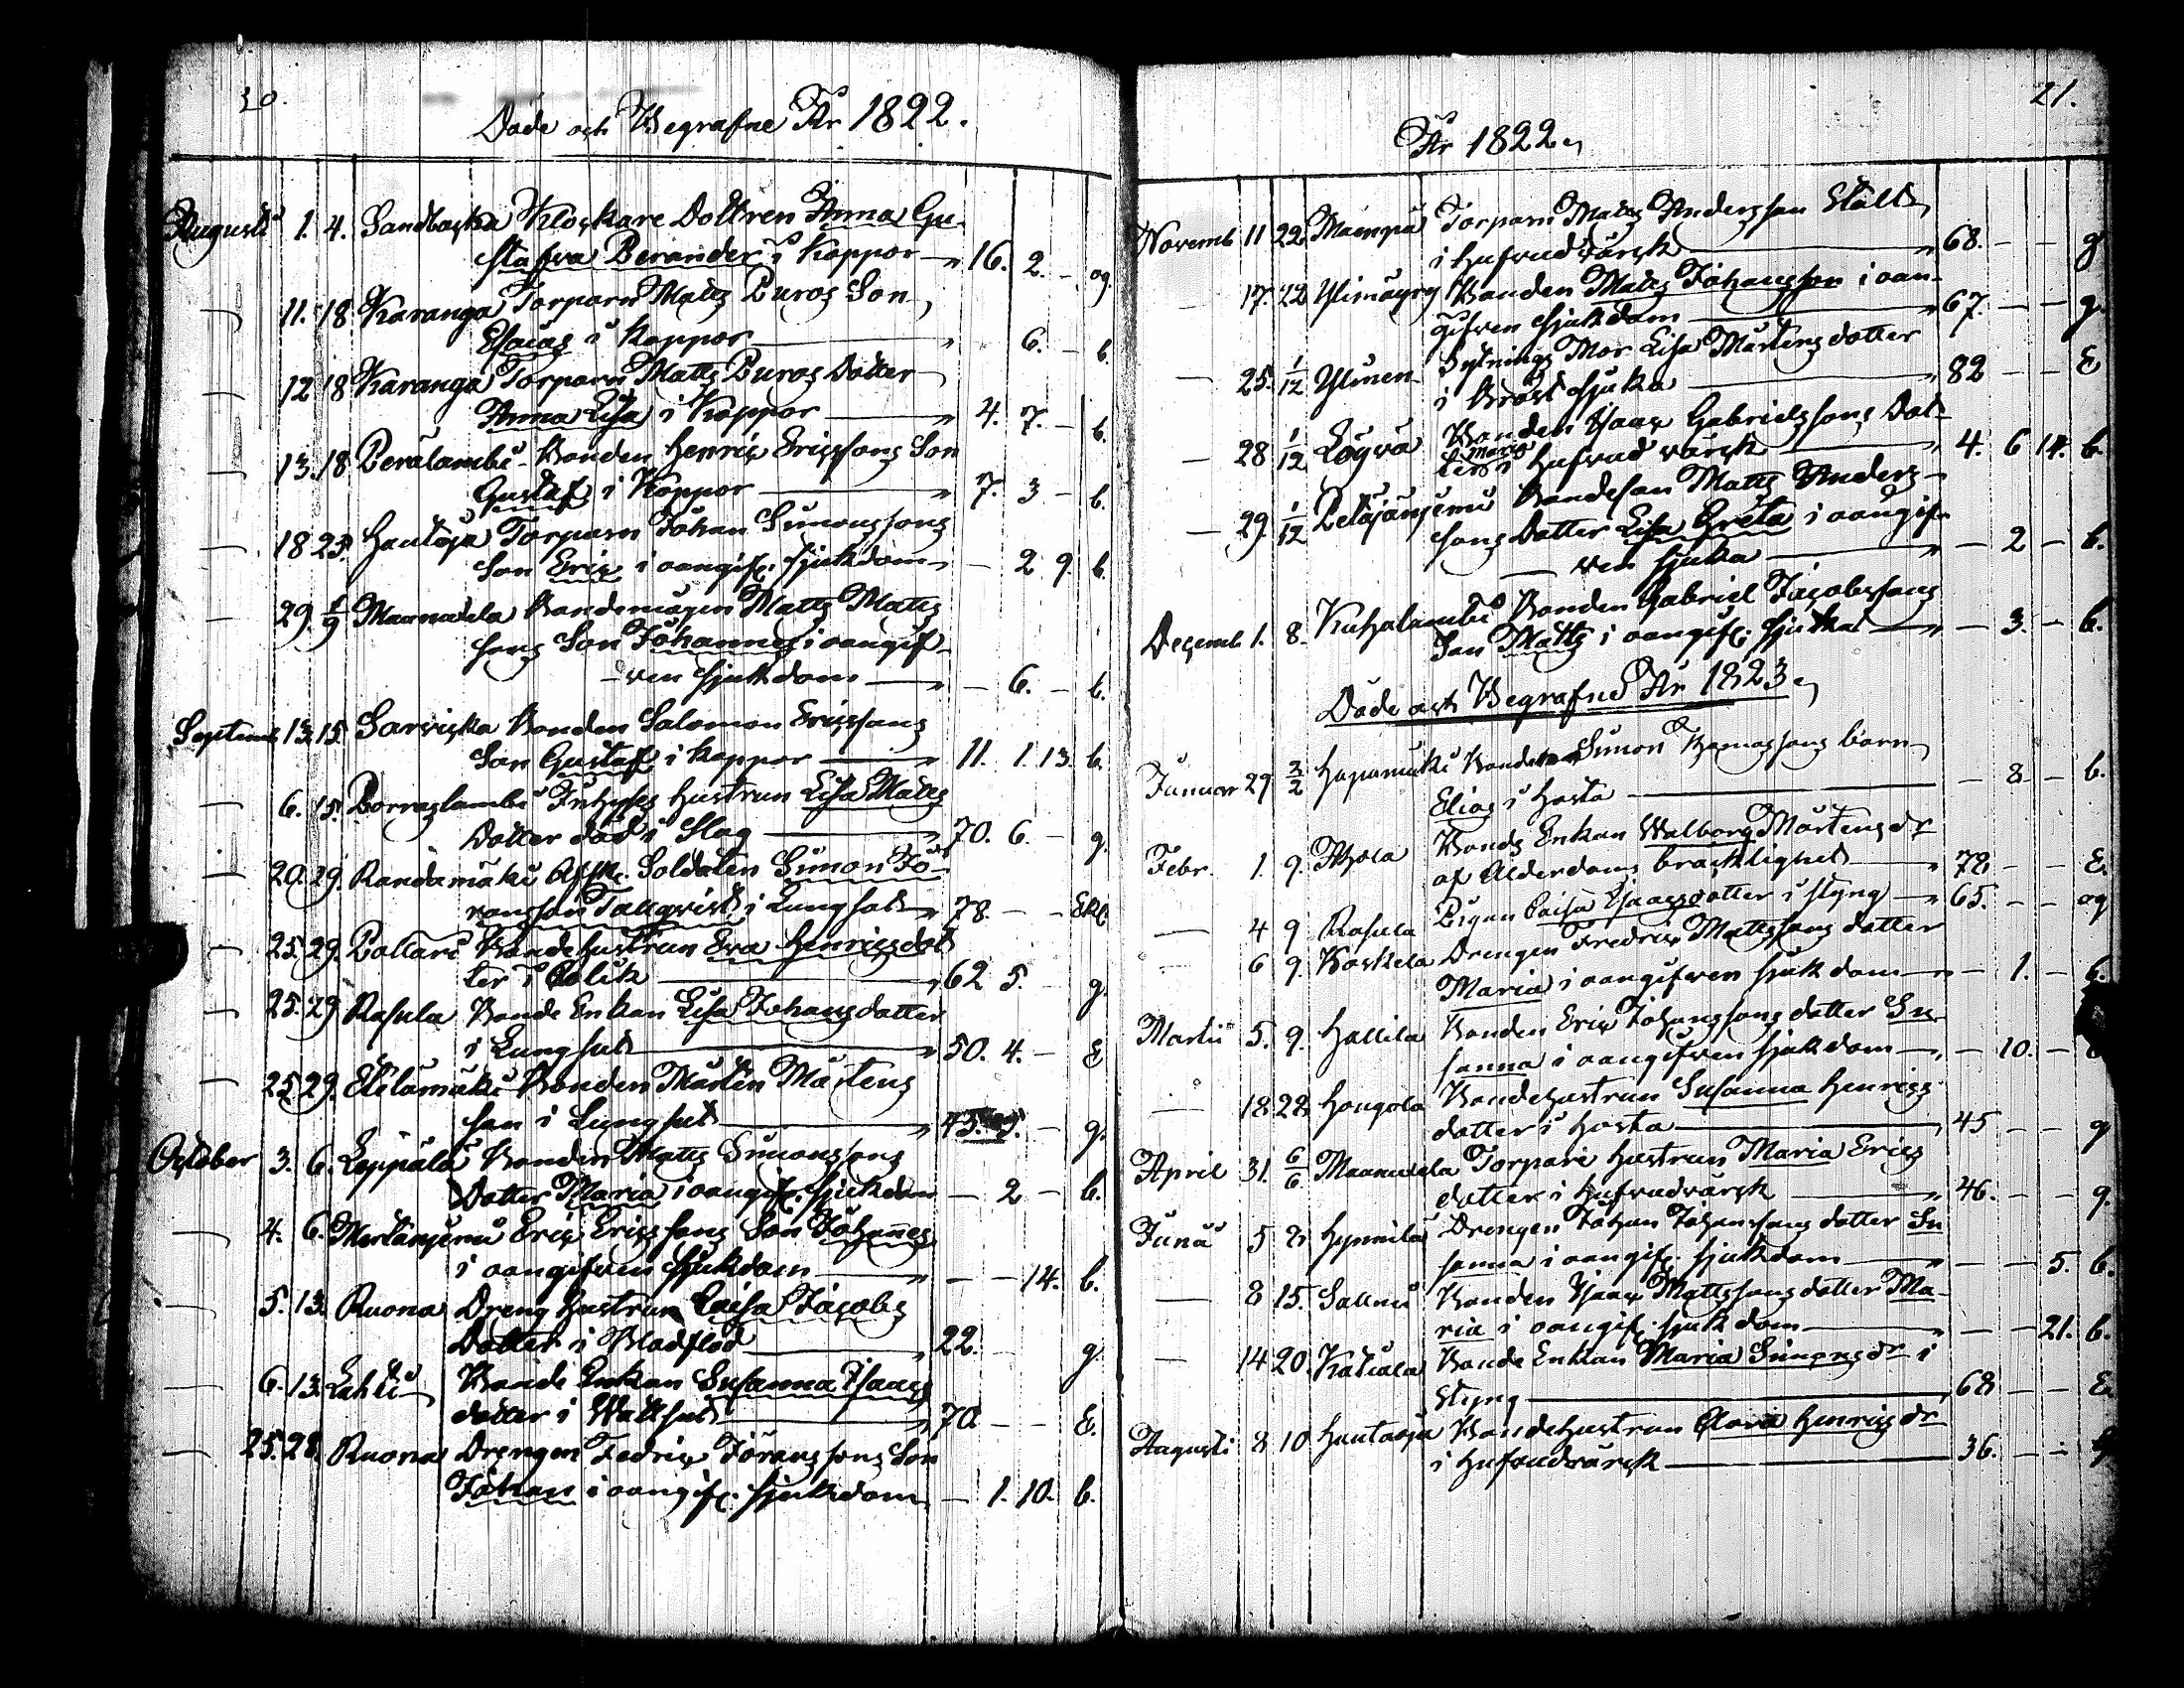 20.
Döde och Begrafne År 1822.
Augusti 1. 4. Sandbacka Klåckare Dottren Anna Gu-
stafva Berander i Koppor 16. 2. - og.
11. 18 Karanga Torparn Matts Puros Son
Esaias i Koppor 6. - b.
12 18 Karanga Torparn Matts Puros Dotter
Anna Lisa i Koppor 4. 7. - b.
13. 18 Perälambi Bonden Henric Ericssons Son
Gustaf i Koppor 7. 3 - b.
18 25. Hautoja Torparn Johan Simonssons
Son Eric i oangif. sjukdom - 2 9. b.
29. 1/9 Maunula Bondemågen Matts Matts
sons Son Johannes i oangif-
ven sjukdom - 6. - b.
Septemb 13. 15. Sarvicka Bonden Salomon Ericssons
Son Gustaf i Koppor 11. 1. 13. b.
6. 15. Porraslambi Inhyses hustrun Lisa Matts
Dotter död i Slag 70. 6. - g.
20. 29. Randamäki Afsk. Soldaten Simon Jö-
ransson Tallqvist i Lungsot 78. - - Ekl.
25 29. Pollari Bondehustrun Eva Henricsdot
ter i Colik 62 5. - g.
25. 29 Rasula Bonde Enkan Lisa Johansdotter
i Lungsot 50. 4. - E
25 29. Etelämäki Bonden Mårten Mårtens
son i Lungsot 45. 5. - g.
October 3. 6. Leppälä Bonden Matts Simonssons
Dotter Maria i oangif. sjukdom - 2 - b.
4. 6. Merlänjemi Eric Ericssons Son Johannes
i oangifven sjukdom - - 14. b.
5. 13. Ruona Dreng hustrun Caisa Jacobs
Dotter i Blodflod 22. - g.
6. 13. Lahti Bonde Enkan Susanna Isaacs
dotter i Wattsot 70 - - E.
25. 28. Ruona Drengen Fedric Jöranssons Son
Johan i oangif. sjukdom - 1. 10. b.
21.
År 1822.
Novemb 11 22 Mämpä Torparn Matts Andersson Stålt
i hufvudvärck 68. - - g
17. 22 Ylimäyry Bonden Matts Johansson i oan-
gifven sjukdom 67. - - g.
25. 1/12 Ylinen Sytnings Mor Lisa Mårtens dotter
i Bröst sjuka 82 - - E
28 1/12 Löyvä Bonden Isaac Gabrielssons Dot-
ter Maria i hufvud värck 4. 6 14. b
29. 1/12 Peläjänjemi Bondeson Matts Anders-
sons Dotter Lisa Greta i oangif-
ven sjuka - 2 - b.
Decemb 1. 8. Kuhalambi Bonden Gabriel Jacobssons
Son Matts i oangif. sjuka - 3. - b.
Döde och Begrafne År 1823.
Januar 29 2/2 Hapamäki Bonden Simon Thomassons barn
Elias i hosta - 8 - b.
Febr. 1. 9. Ahola Bonds Enkan Walborg Mårtensdr
af ålderdoms bräcklighet 78 - - E.
4 9 Rasula Pigan Caisa Isaacsdotter i styng 65. - - og
6 9. Koskela Drengen Fredric Mattssons dotter
Maria i oangifven sjukdom - 1. - b.
Martii 5. 9. Hallila Bonden Eric Johanssons dotter Su
sanna i oangifven sjukdom - 10. -
18 22 Hongola Bondehustrun Susanna Henrics
dotter i hosta 45 - - g
April 31. 6/6 Maunula Torpare hustrun Maria Erics
dotter i hufvudvärck 46. - - g.
Junii 5 8 Hynnilä Drengen Johan Johanssons dotter Su
sanna i oangif. sjukdom - - 5. b.
8 15. Sallmi Bonden Isaac Mattssons dotter Ma-
ria i oangif. sjukdom - - 21. b.
14 20. Katiala Bonde Enkan Maria Simonsdr i
styng 68 - - E.
Augusti 8 10 Hautaoja Bondehustrun Clara Henricsdr
i hufvudvärck 36. - - g